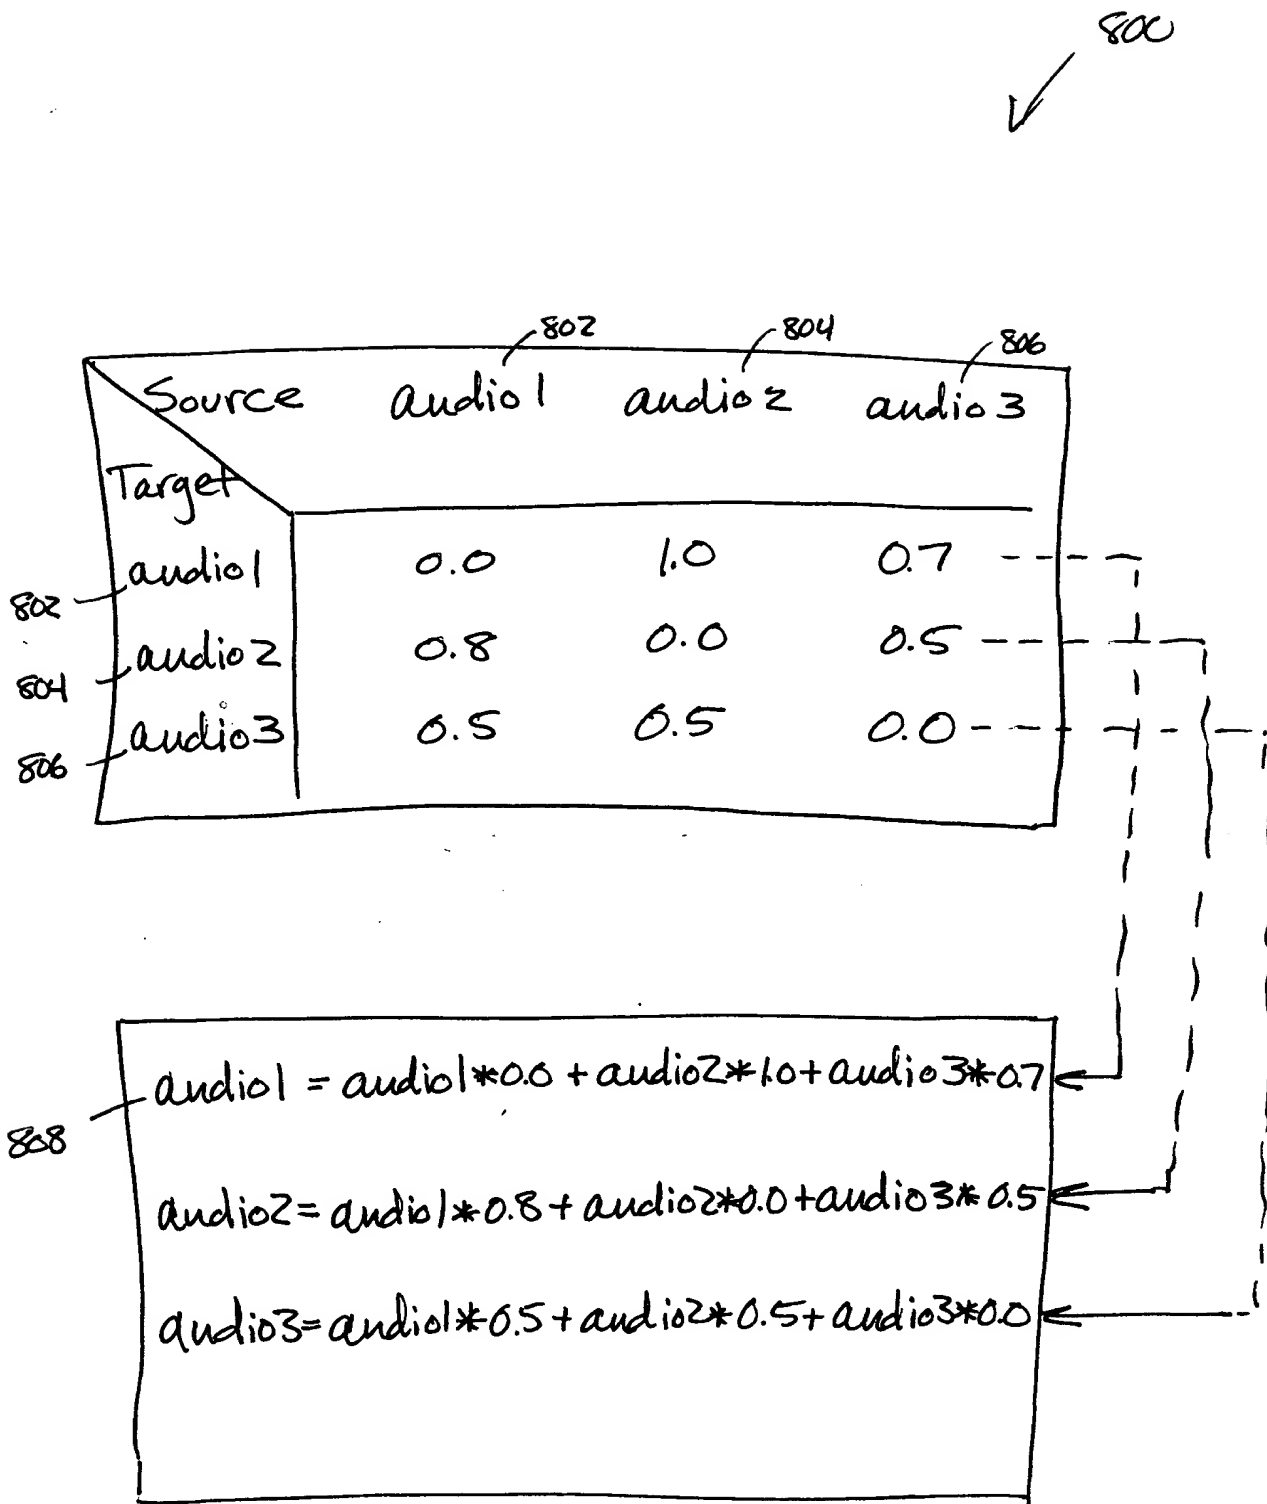 800
802 804 806
Source audio1 audio2 audio3
Target
audio1 0.0 1.0 0.7
802
audio2 0.8 0.0 0.5
804
audio3 0.5 0.5 0.0
806
audio1 = audio1*0.0 + audio2*1.0+audio3*0.7
808
audio2= audio1*0.8+audio2*0.0+audio3*0.5
audio3=audio1*0.5+audio2*0.5+audio3*0.0